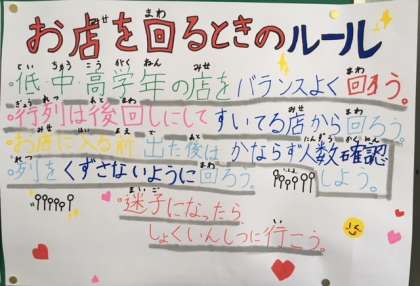 お店を回るときのルール
・低・中・高学年の店をバランスよく回ろう。
・行列は後回しにしてすいてる店から回ろう。
・お店に入る前、出た後はかならず人数確認
しよう。
・列をくずさないように回ろう。
・迷子になったら
しょくいんしつに行こう。